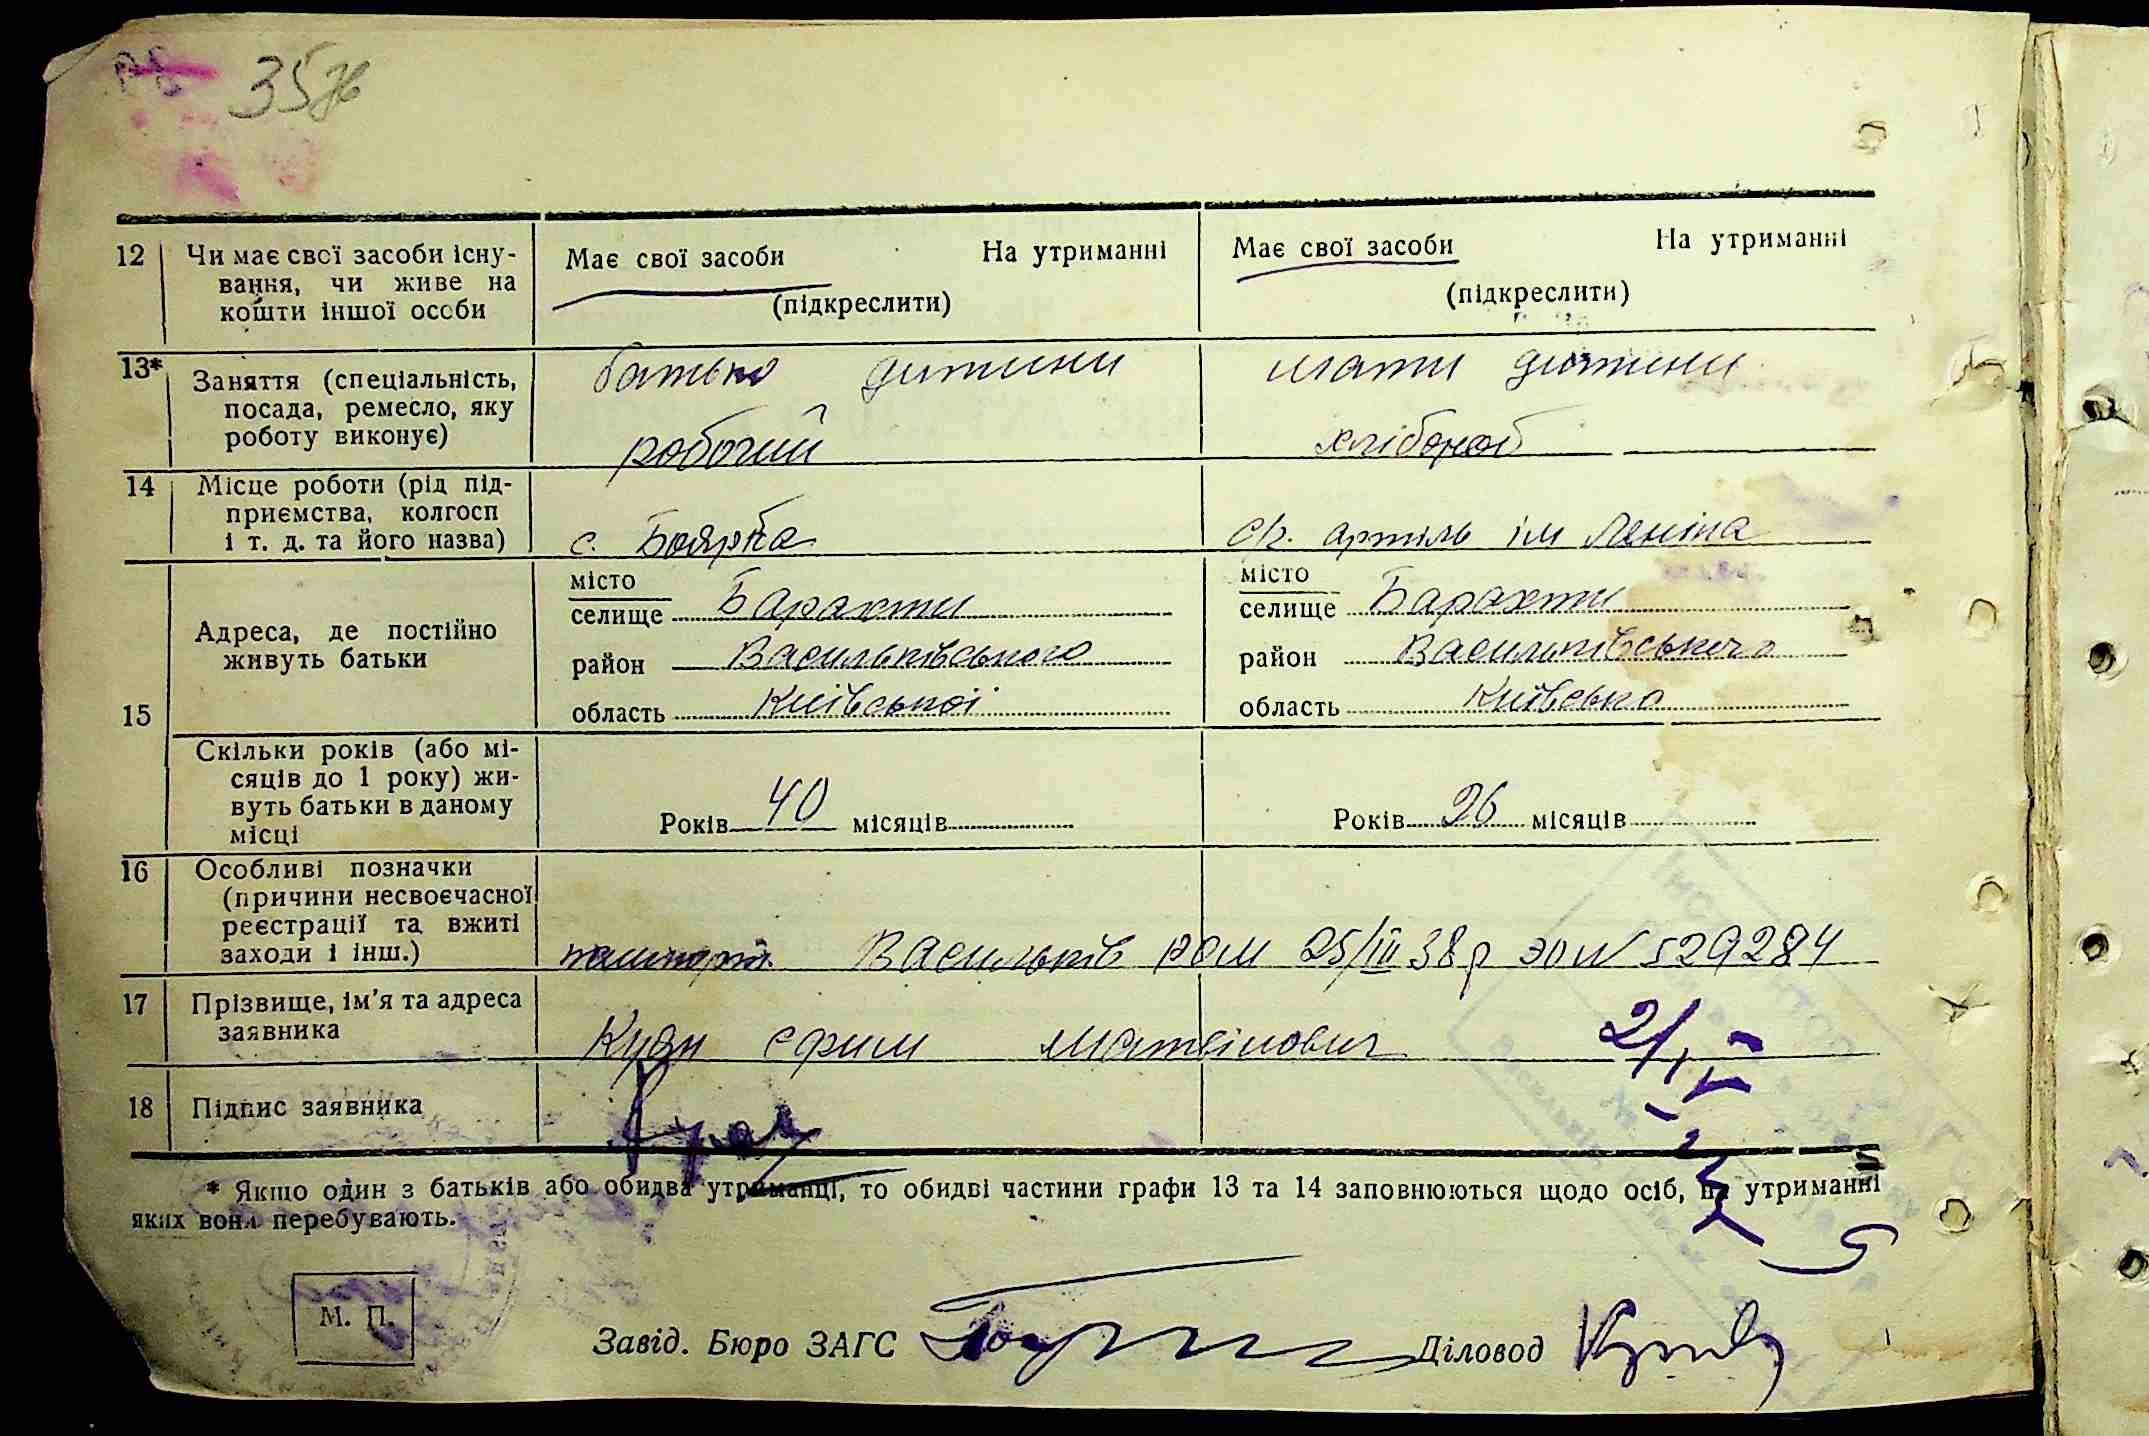 35
12 Чи має свої засоби існу- Має свої засоби На утриманні Має свої засоби На утриманні
вання, чи живе на (підкреслити) (підкреслити)
кошти іншої особи
13* Заняття (спеціальність, батько дитини мати дитини
посада, ремесло, яку
роботу виконує) робочий хлібороб
14 Місце роботи (рід під-
приємства, колгосп
і т. д. та його назва) с. Боярка с/г. артіль ім Леніна
15 Адреса, де постійно
живуть батьки
місто місто
селище Барахти селище Барахти
район Васильківського район Васильківського
область Київської область Київсько
Скільки років (або мі-
сяців до 1 року) жи-
вуть батьки в даному Років 40 місяців Років 26 місяців
місці
16 Особливі позначки
(причини несвоєчасної
реєстрації та вжиті
заходи і інш.) паспорт Васильків РОМ 25/III 38р ЭО N 529284
17 Прізвище, ім'я та адреса
заявника Ефим Матвійович
18 Підпис заявника
* Якщо один з батьків або обидва утриманці, то обидві частини графи 13 та 14 заповнюються щодо осіб, на утриманні
яких вони перебувають.
М. П.
Завід. Бюро ЗАГС Діловод